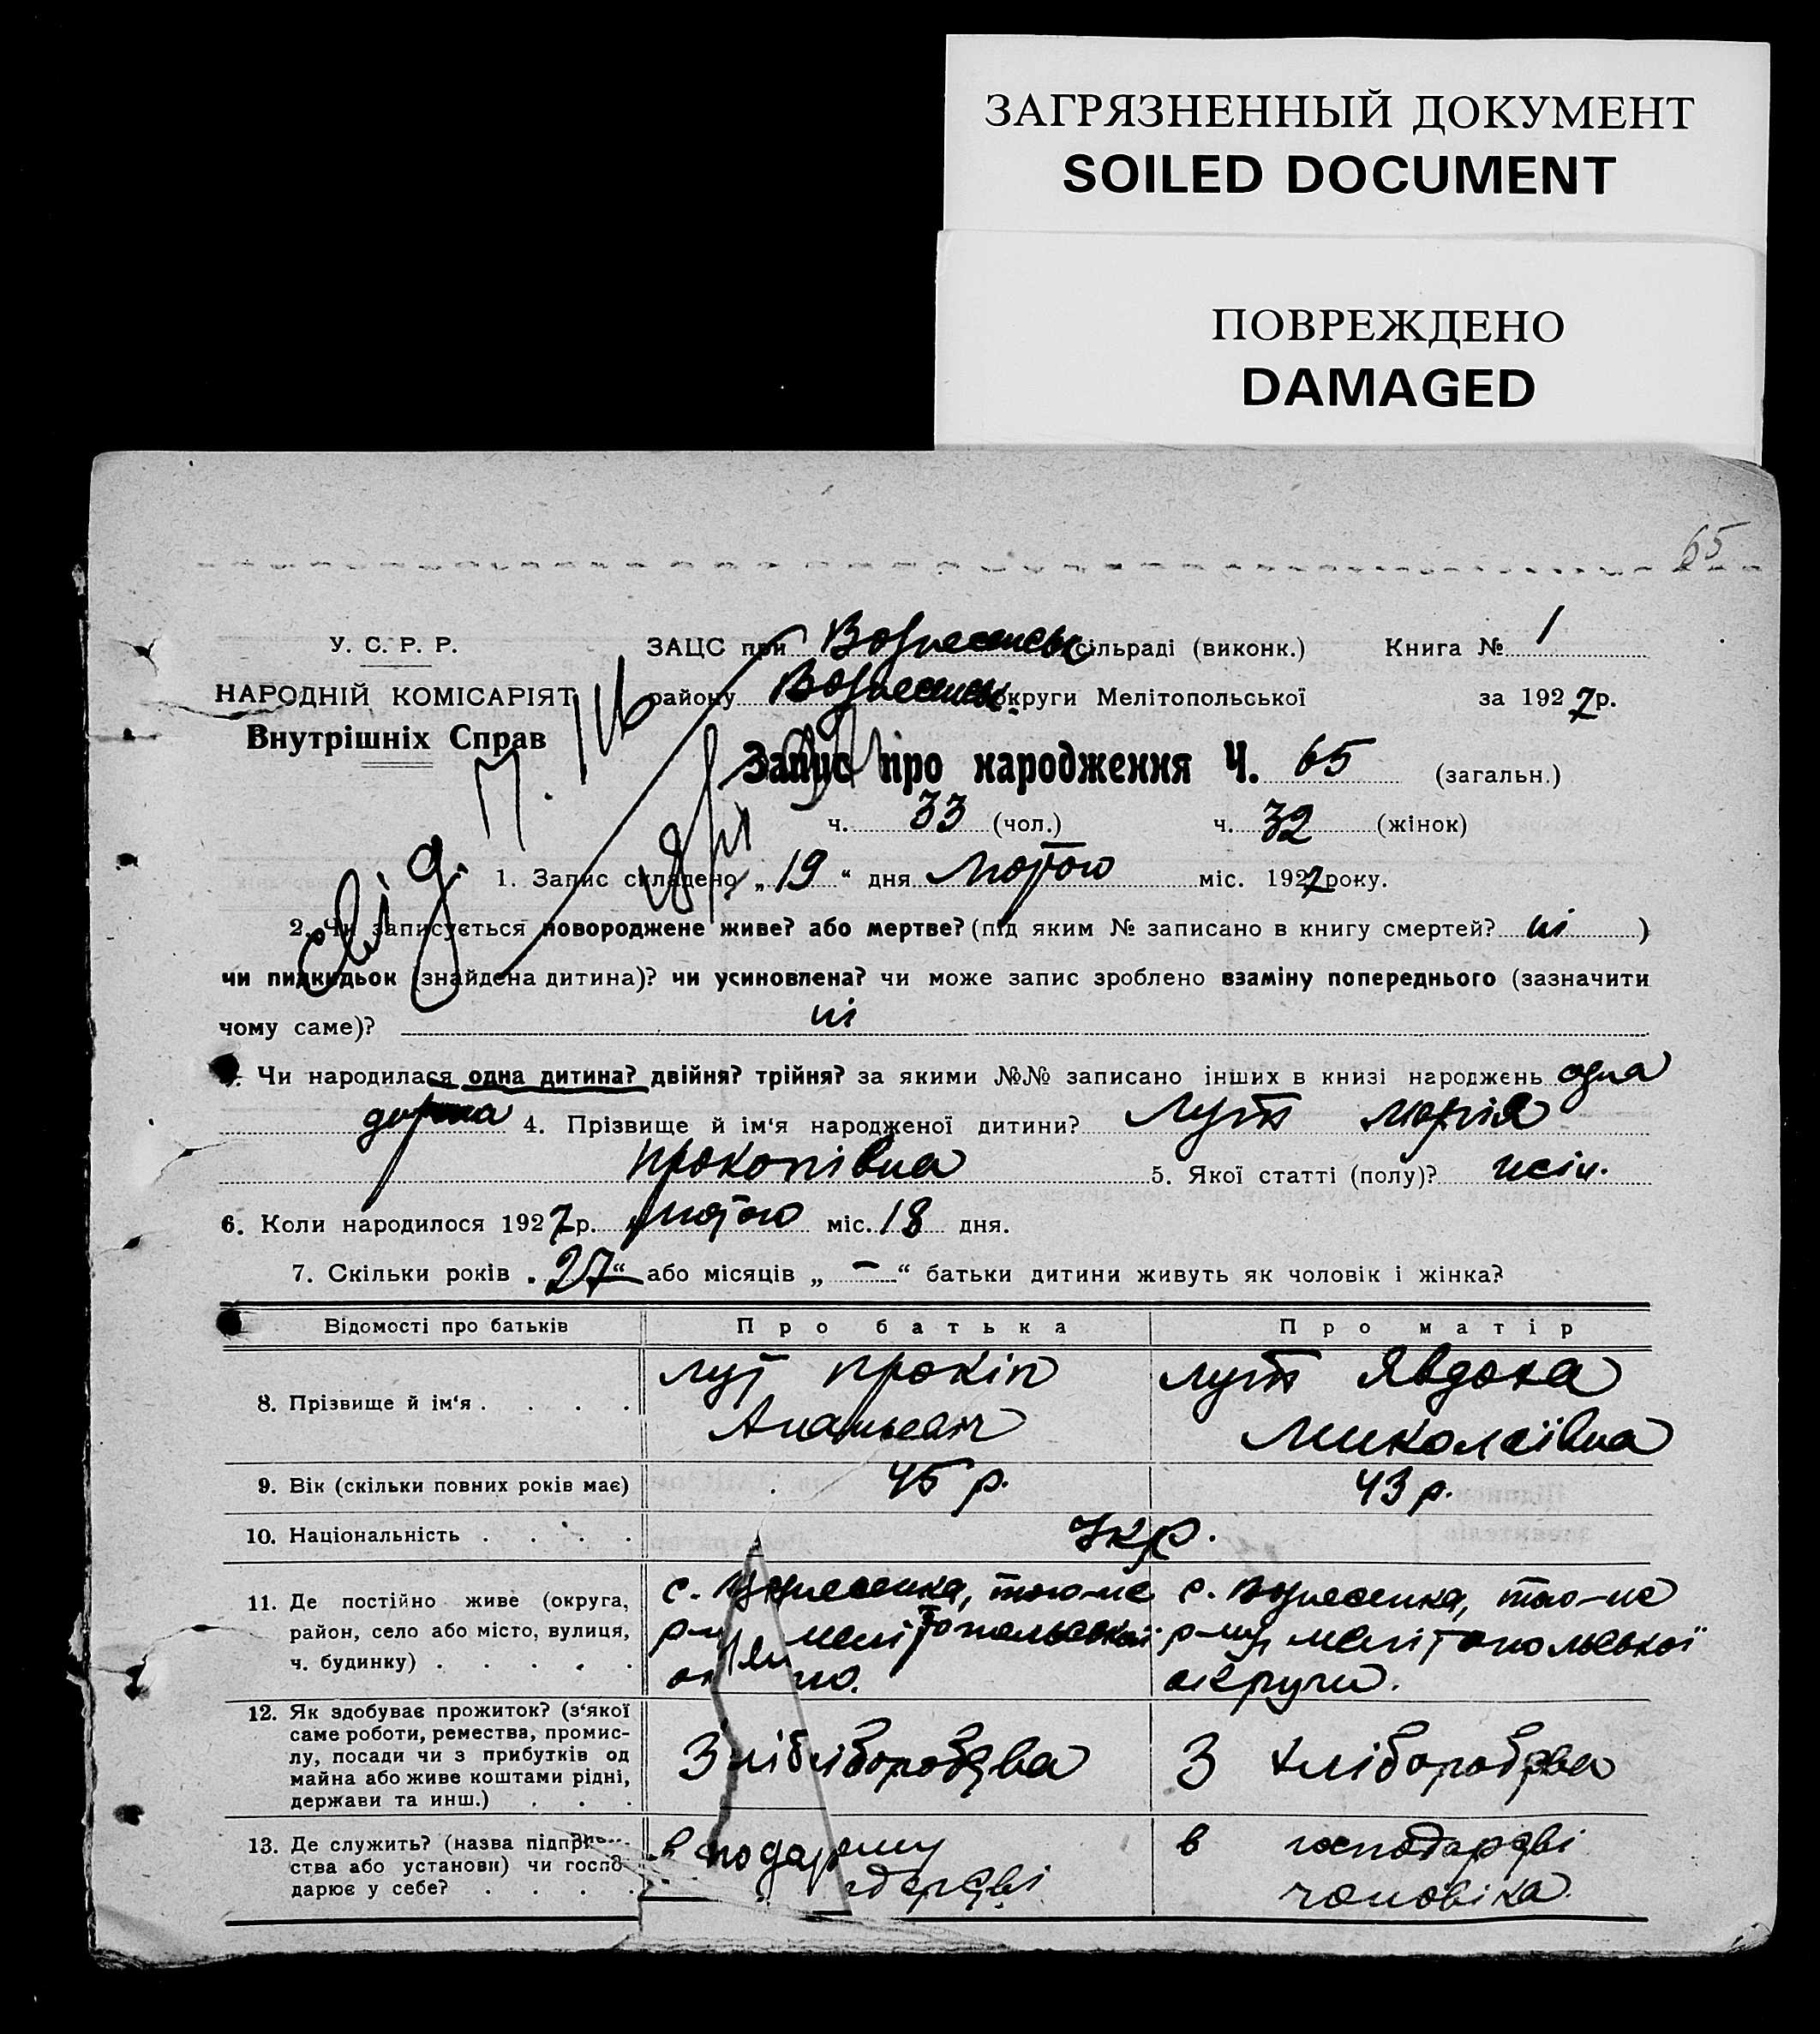 ЗАГРЯЗНЕННЫЙ ДОКУМЕНТ
SOILED DOCUMENT
ПОВРЕЖДЕНО
DAMAGED
65
У. С. Р. Р.
НАРОДНІЙ КОМІСАРІЯТ
Внутрішніх Справ
ЗАЦС при Вознесенськ сільраді (виконк.) Книга № 1
району Вознесенськ. округи Мелітопольської за 1927 р.
Запис про народження Ч. 65 (загальн.)
ч. 33 (чол.) ч. 32 (жінок)
1. Запис складено „19“ дня Лютого міс. 1927 року.
2. Чи записується новороджене живе? або мертве? (під яким № записано в книгу смертей? ні )
чи пидкидьок (знайдена дитина)? чи усиновлена? чи може запис зроблено взаміну попереднього (зазначити
чому саме)? ні
Чи народилася одна дитина? двійня? трійня? за якими №№ записано інших в книзі народжень одна
дитина 4. Прізвище й ім‘я народженої дитини? Лутт Марія
Прокопівна 5. Якої статті (полу)? жін.
6. Коли народилося 1927 р. лютого міс. 18 дня.
7. Скільки років „27“ або місяців „ — “ батьки дитини живуть як чоловік і жінка?
Відомості про батьків Про батька Про матір
8. Прізвище й ім‘я . . . . Лут Прокіп Лутт Явдоха
Ананьевич Миколаївна
9. Вік (скільки повних років має) 45 р. 43 р.
10. Національність . . . . Укр.
11. Де постійно живе (округа, район, село або місто, вулиця, ч. будинку) . . . . .
с. Вознесенка, того-же
мелітопольської
с. Вознесенка, того-же
р-ну, мелітопольської
округи.
12. Як здобуває прожиток? (з‘якої саме роботи, ремества, промислу, посади чи з прибутків од майна або живе коштами рідні, держави та инш.) . . .
З хліборобства З хліборобства
13. Де служить? (назва підпри
ства або установи) чи госпо-
дарює у себе? . . . .
в
в господарстві
чоловіка